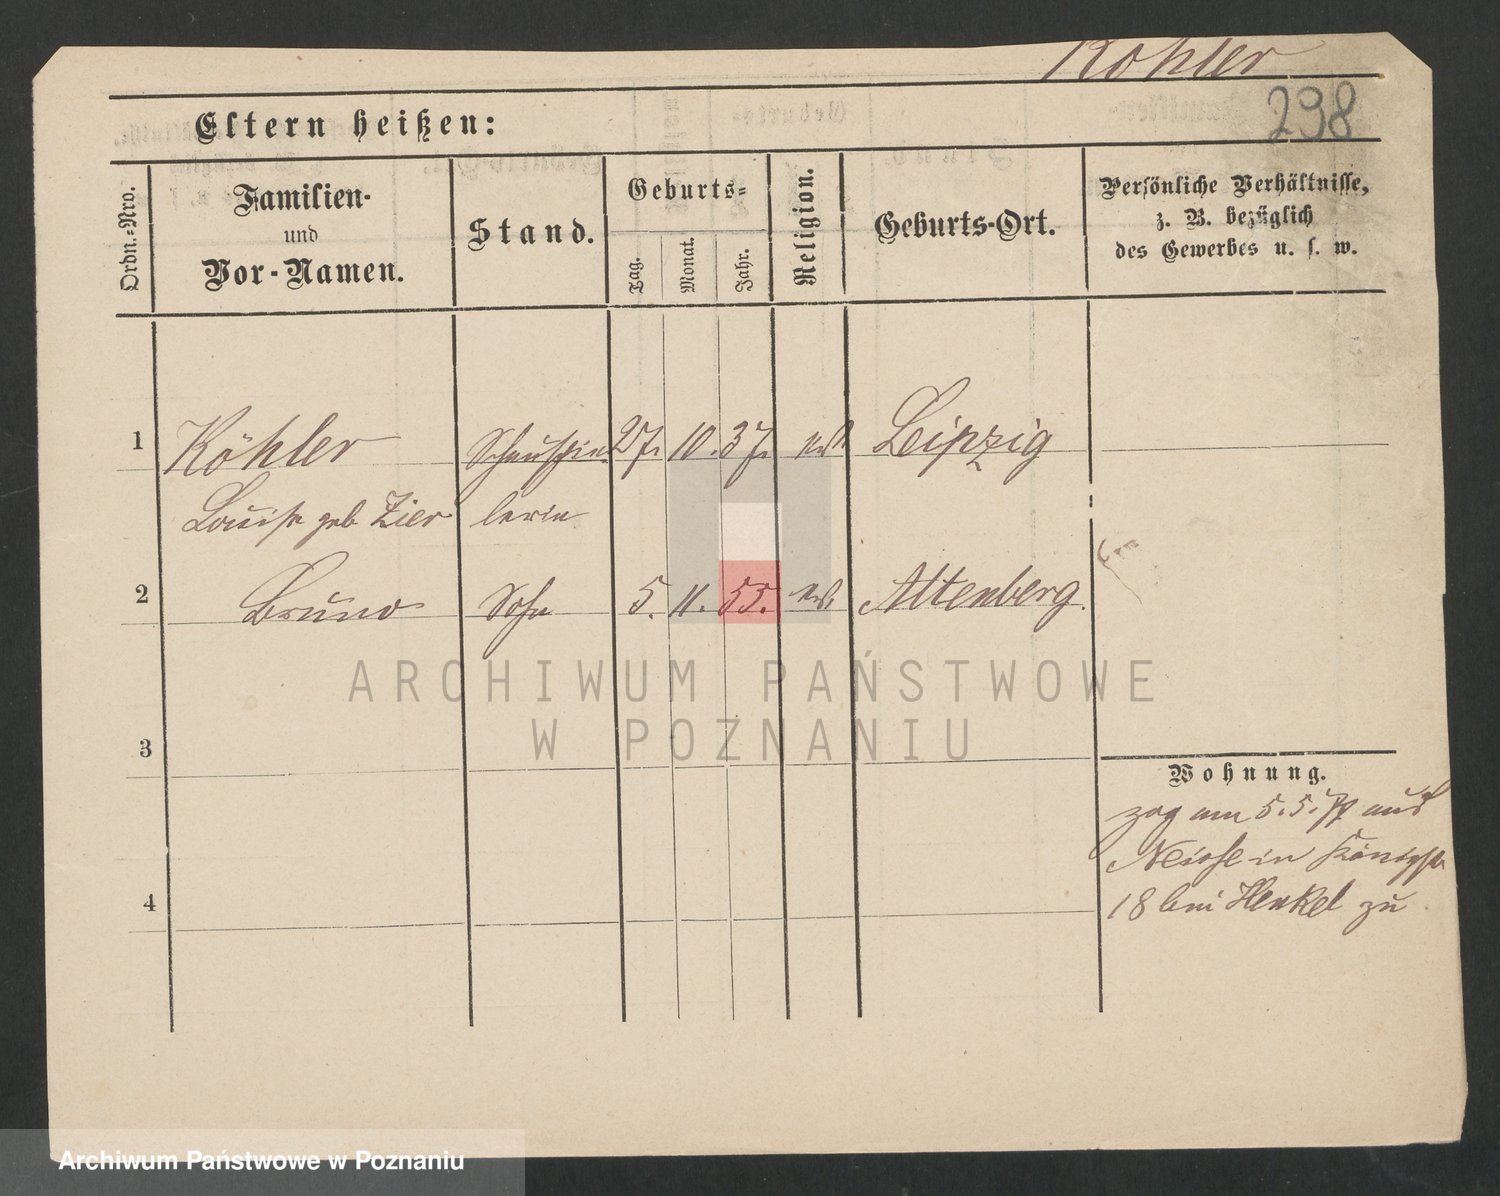 Köhler
298
Eltern heißen:
Ordn.-Nro.
Familien-
und
Vor-Namen.
Stand.
Geburts-
Tag.
Monat.
Jahr.
Religion.
Geburts-Ort.
Persönliche Verhältnisse,
z. B. bezüglich
des Gewerbes u. s. w.
1 Köhler Schauspie 27. 10. 37. Leipzig
Louise geb Zier lerin
2 Bruno Sohn 5. 11. 55. Altenberg.
ARCHIWUM PAŃSTWOWE
W POZNANIU
3
Wohnung.
zog am 5.5. aus
Neisse in Königstr
18 bei Henkel zu
4
Archiwum Państwowe w Poznaniu